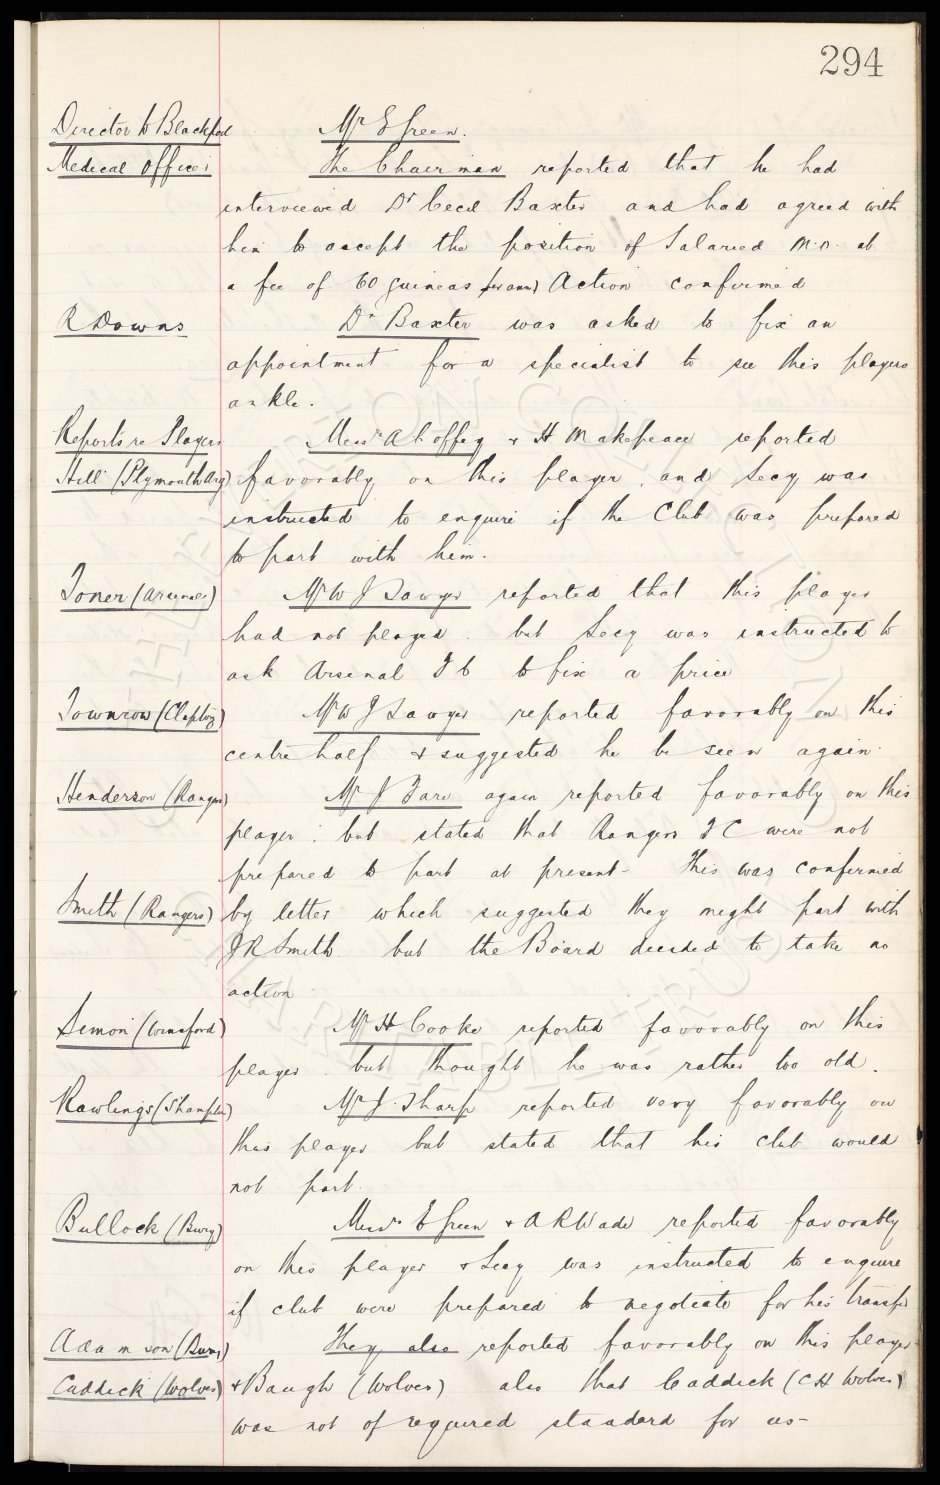 294
Director to Blackpool Mr E Green.
Medical Officer The Chairman reported that he had
interviewed Dr Cecil Baxter and had agreed with
him to accept the position of Salaried M.O. at
a fee of 60 guineas (per ann) Action confirmed
R Downs Dr Baxter was asked to fix an
appointment for a specialist to see this players
ankle.
Reports re Players Messrs A C Offey & H Makepeace reported
Hill (Plymouth Arg) favorably on this player, and Secy was
instructed to enquire if the Club was prepared
to part with him.
Toner (Arsenal) Mr W J Sawyer reported that this player
had not played. but Secy was instructed to
ask Arsenal F C to fix a price
Townrow (Clapton) Mr W J Sawyer reported favorably on this
centre half & suggested he be seen again.
Henderson (Rangers) Mr J Fare again reported favorably on this
player: but stated that Rangers F C were not
prepared to part at present - This was confirmed
Smith (Rangers) by letter which suggested they might part with
J R Smith. but the Board decided to take no
action
Simon (Winsford) Mr H Cooke reported favorably on this
player. but thought he was rather too old.
Rawlings (S'hampton) Mr J. Tharp reported very favorably on
this player but stated that his club would
not part.
Bullock (Bury) Messrs E Green & A R Wade reported favorably
on this player & Secy was instructed to enquire
if club were prepared to negotiate for his transfer
Adamson (Bury) They also reported favorably on this player
Caddick (Wolves) & Baugh (Wolves) also that Caddick (C H Wolves)
was not of required standard for us -